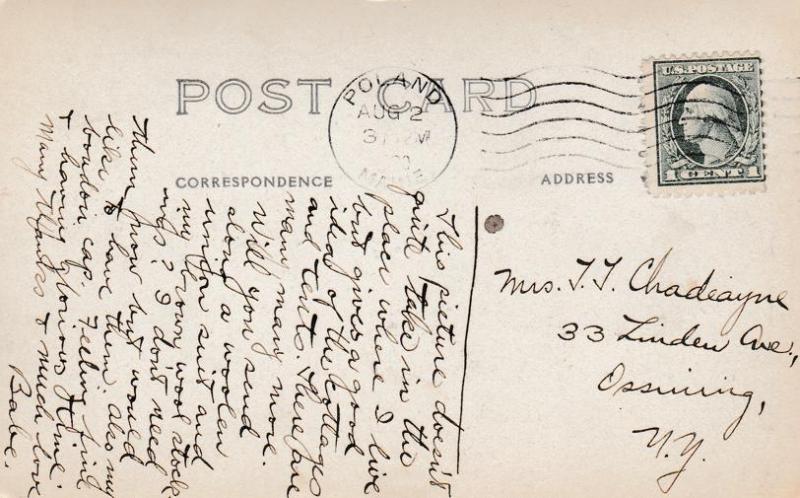 POST CARD
CORRESPONDENCE
ADDRESS
POLAND
AUG 2
MAINE
U.S. POSTAGE
1 CENT 1
This picture doesn't
quite take in the
place where I live
but gives a good
idea of the cottages
and tents. There are
many many more.
Will you send
along a woolen
union suit and
my brown wool stock-
ings? I don't need
them now but would
like to have them also my
boudoir cap. Feeling fine
& having glorious time.
Many thanks & much love
Babe.
Mrs. T. T. Chadeayne
33 Linden Ave.,
Ossining,
N.Y.